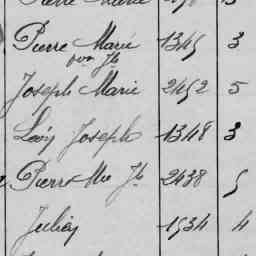 Pierre Marie 1345 3
Joseph Marie 2452 5
Léon Joseph 1348 3
Pierre Mie Jh 2438 5
Julien 1534 4